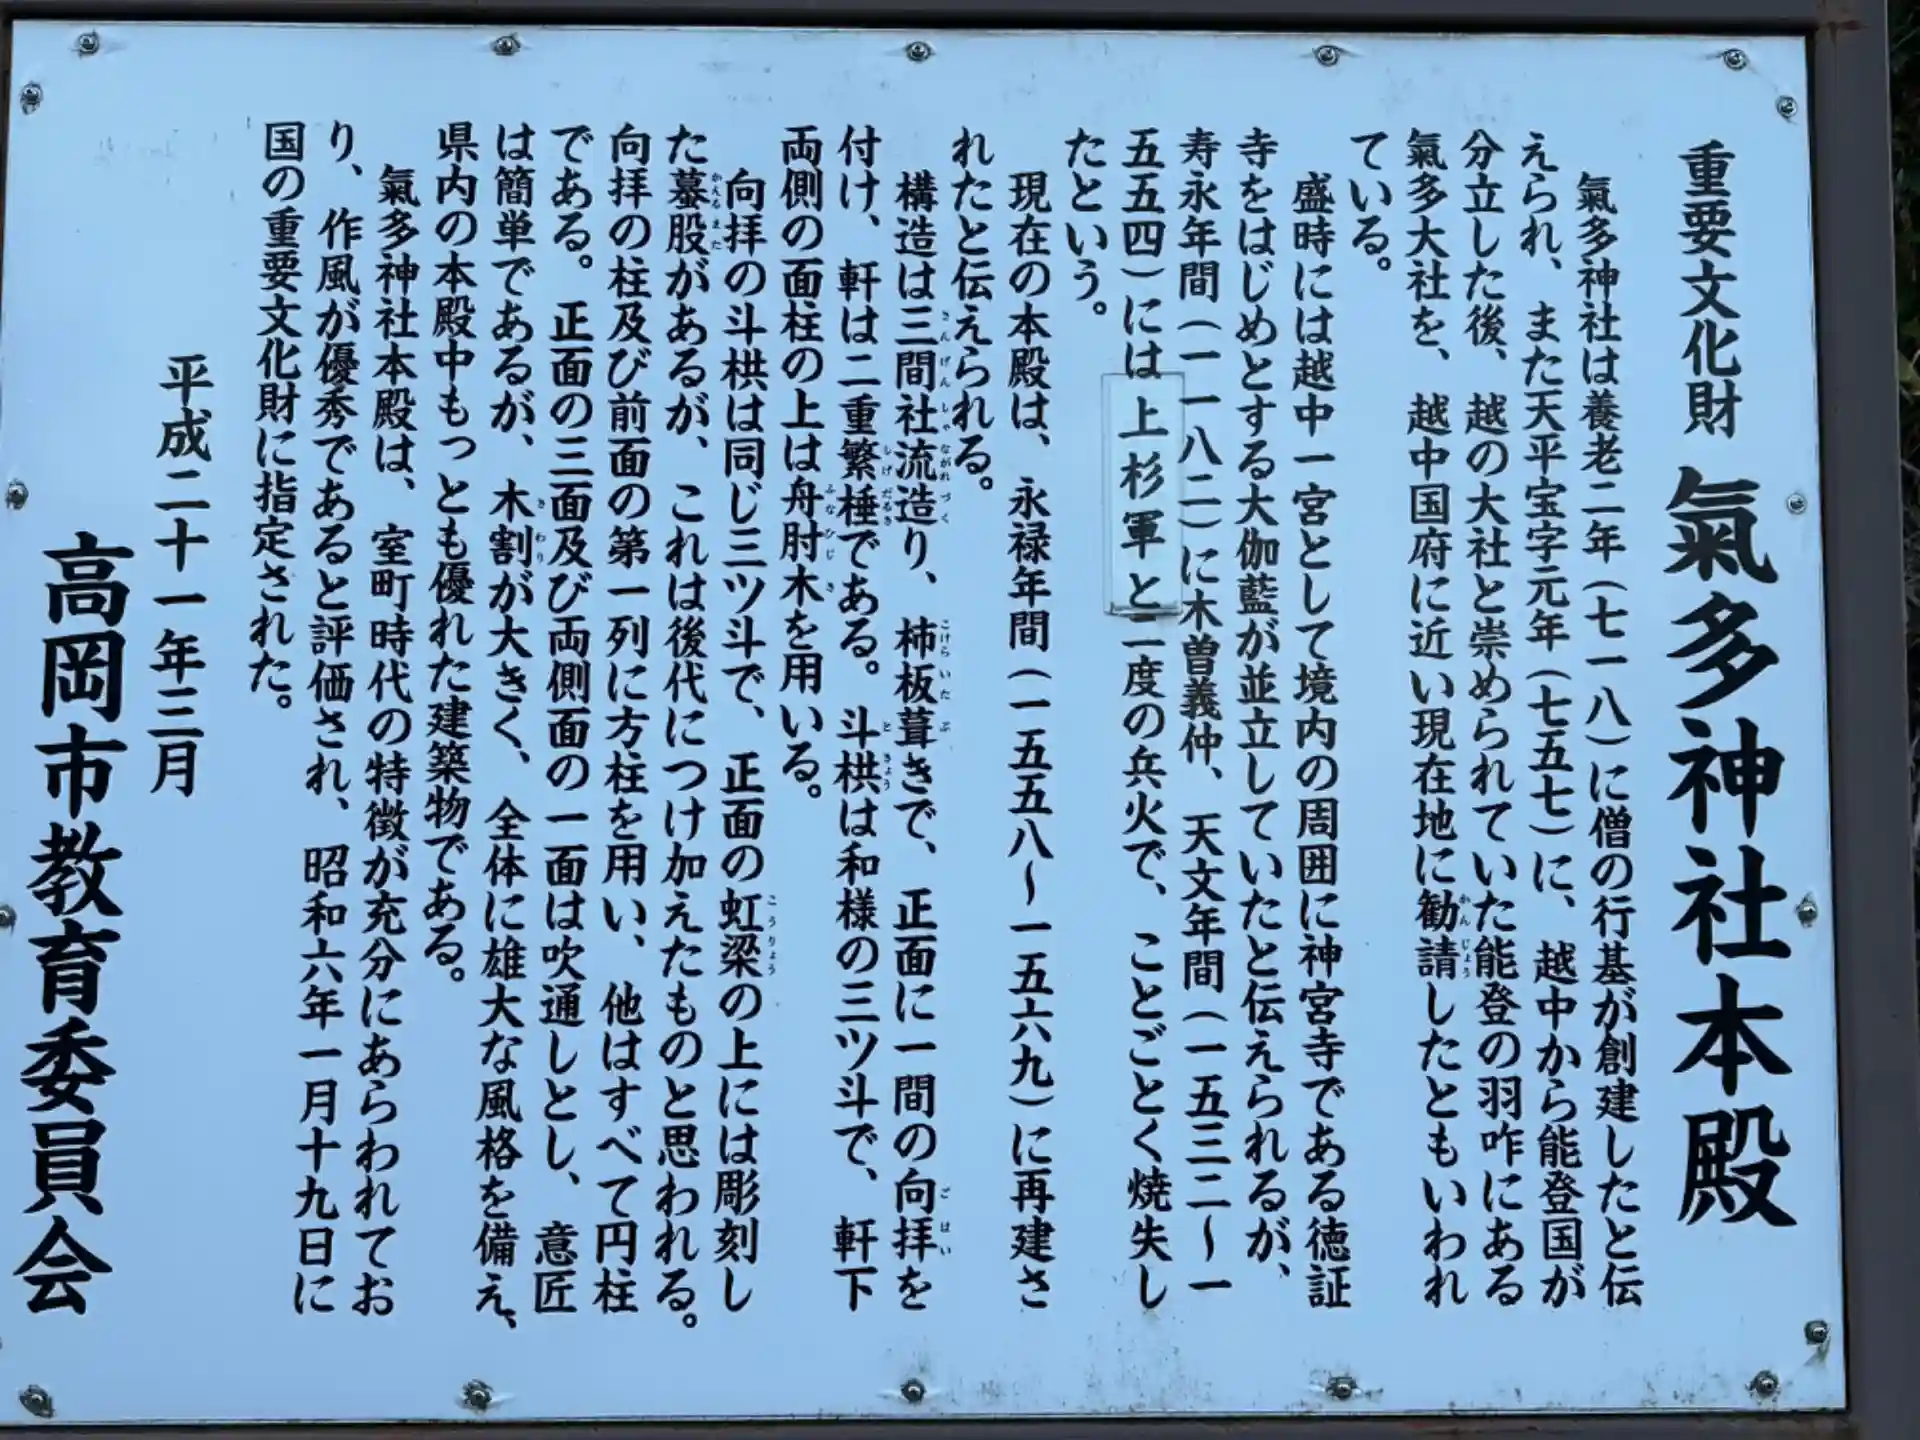 重要文化財 氣多神社本殿
氣多神社は養老二年(七一八)に僧の行基が創建したと伝
えられ、また天平宝字元年(七五七)に、越中から能登国が
分立した後、越の大社と崇められていた能登の羽咋にある
氣多大社を、越中国府に近い現在地に勧請したともいわれ
ている。
盛時には越中一宮として境内の周囲に神宮寺である徳証
寺をはじめとする大伽藍が並立していたと伝えられるが、
寿永年間(一一八二)に木曽義仲、天文年間(一五三二〜一
五五四)には上杉軍と二度の兵火で、ことごとく焼失し
たという。
現在の本殿は、永禄年間(一五五八〜一五六九)に再建さ
れたと伝えられる。
構造は三間社流造り、柿板葺きで、正面に一間の向拝を
付け、軒は二重繁棰である。斗栱は和様の三ツ斗で、軒下
両側の面柱の上は舟肘木を用いる。
向拝の斗栱は同じ三ツ斗で、正面の虹梁の上には彫刻し
た蟇股があるが、これは後代につけ加えたものと思われる。
向拝の柱及び前面の第一列に方柱を用い、他はすべて円柱
である。正面の三面及び両側面の一面は吹通しとし、意匠
は簡単であるが、木割が大きく、全体に雄大な風格を備え、
県内の本殿中もっとも優れた建築物である。
氣多神社本殿は、室町時代の特徴が充分にあらわれてお
り、作風が優秀であると評価され、昭和六年一月十九日に
国の重要文化財に指定された。
平成二十一年三月
高岡市教育委員会